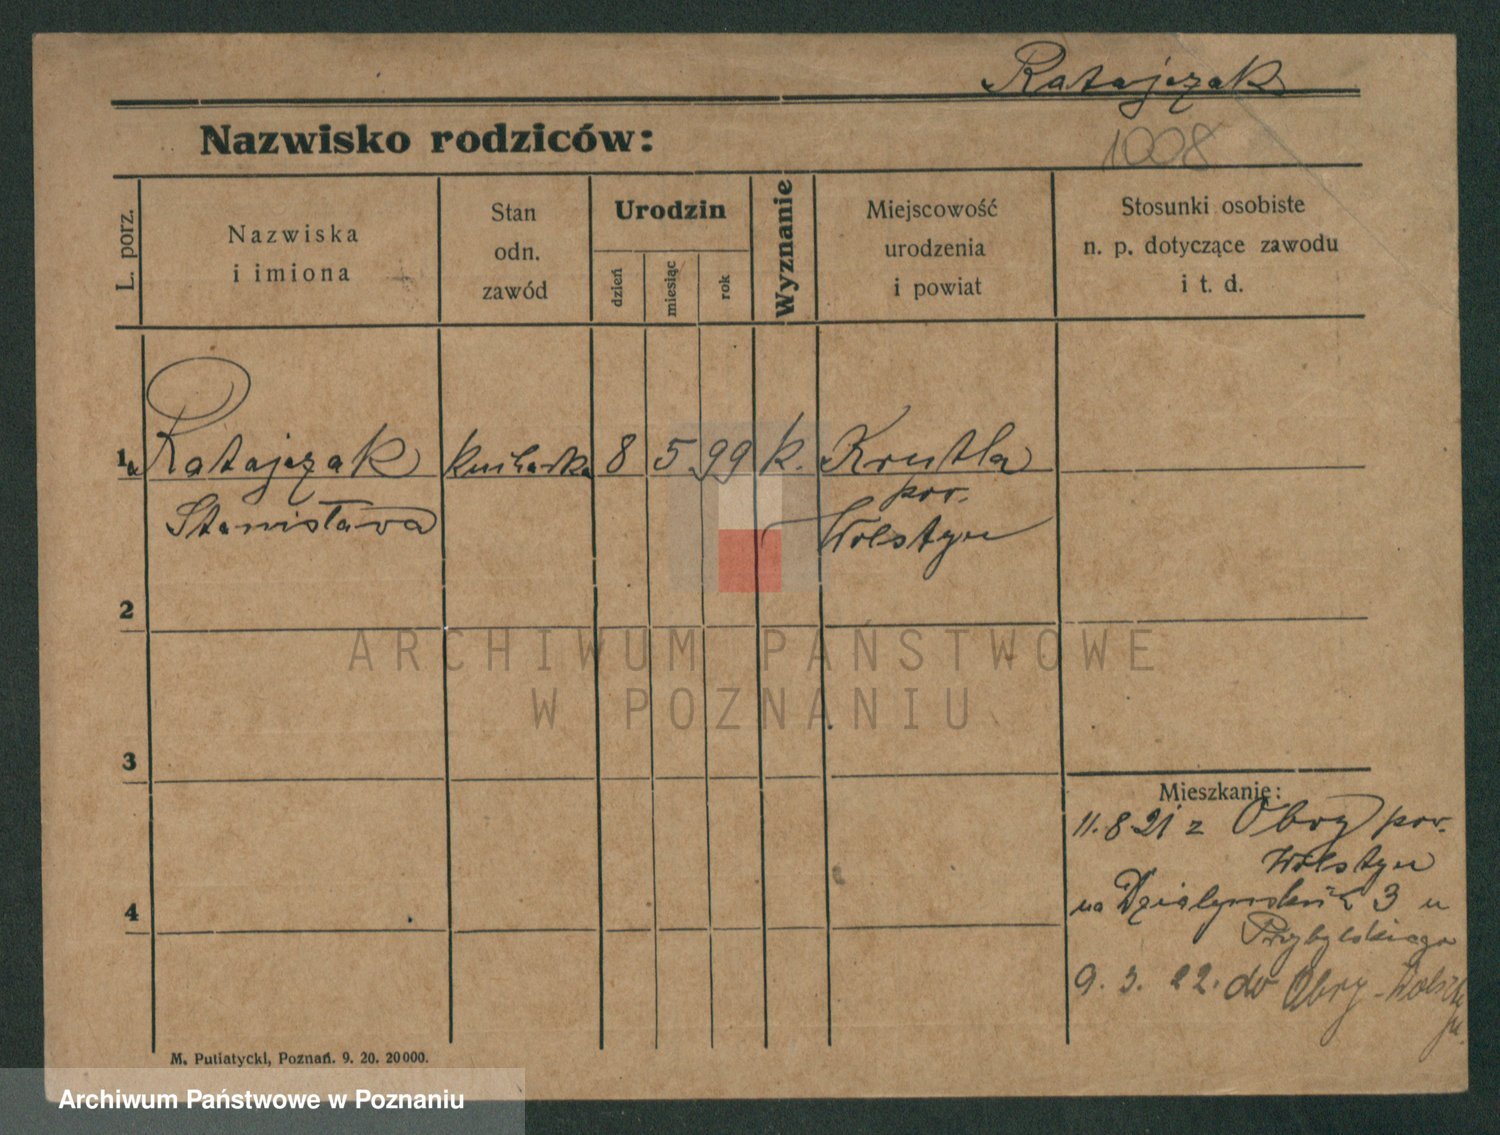 Ratajczak
Nazwisko rodziców:
1008
L. porz.
Nazwiska
i imiona
Stan
odn.
zawód
Urodzin
dzień
miesiąc
rok
Wyznanie
Miejscowość
urodzenia
i powiat
Stosunki osobiste
n. p. dotyczące zawodu
i t. d.
1 Ratajczak kucharka 8 5 99 k. Krutla
Stanisława
pow.
Wolsztyn
2
3
4
Mieszkanie:
11. 8 21 z Obry pow.
Wolsztyn
na Działyńskich 3 u
Przybylskiego
9. 3. 22. do Obry -
M. Putiatycki, Poznań. 9. 20. 20 000.
ARCHIWUM PAŃSTWOWE
W POZNANIU
Archiwum Państwowe w Poznaniu